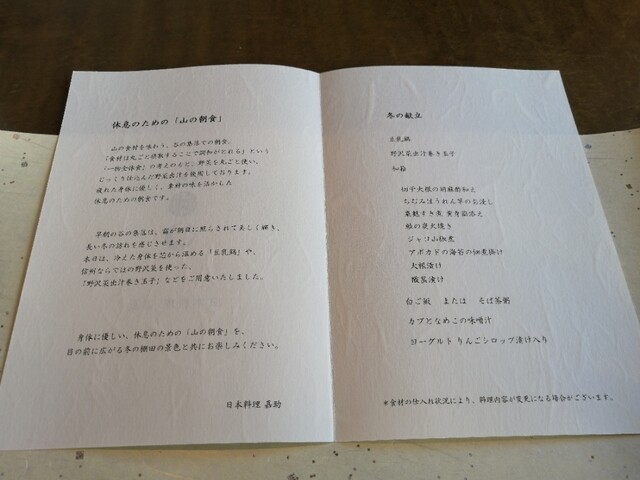 休息のための「山の朝食」
山の食材を味わう、谷の集落での朝食。
「食材は丸ごと摂取することで調和がとれる」という
「一物全体食」の考えのもと、野菜を丸ごと使い、
じっくり仕込んだ野菜出汁を使用しております。
疲れた身体に優しく、素材の味を活かした
休息のための朝食です。
早朝の谷の集落は、霜が朝日に照らされて美しく輝き、
長い冬の訪れを感じさせます。
本日は、冷えた身体を芯から温める「豆乳鍋」や、
信州ならではの野沢菜を使った、
「野沢菜出汁巻き玉子」などをご用意いたしました。
身体に優しい、休息のための「山の朝食」を、
目の前に広がる冬の棚田の景色と共にお楽しみください。
日本料理 嘉助
冬の献立
豆乳鍋
野沢菜出汁巻き玉子
知箱
切干大根の胡麻酢和え
ちぢみほうれん草のお浸し
粟麩すき煮 黄身餡添え
鮭の炭火焼き
ジャコ山椒煮
アボカドの海苔の佃煮掛け
大根漬け
酸茎漬け
白ご飯 または そば茶粥
カブとなめこの味噌汁
ヨーグルト りんごシロップ漬け入り
*食材の仕入れ状況により、料理内容が変更になる場合がございます。